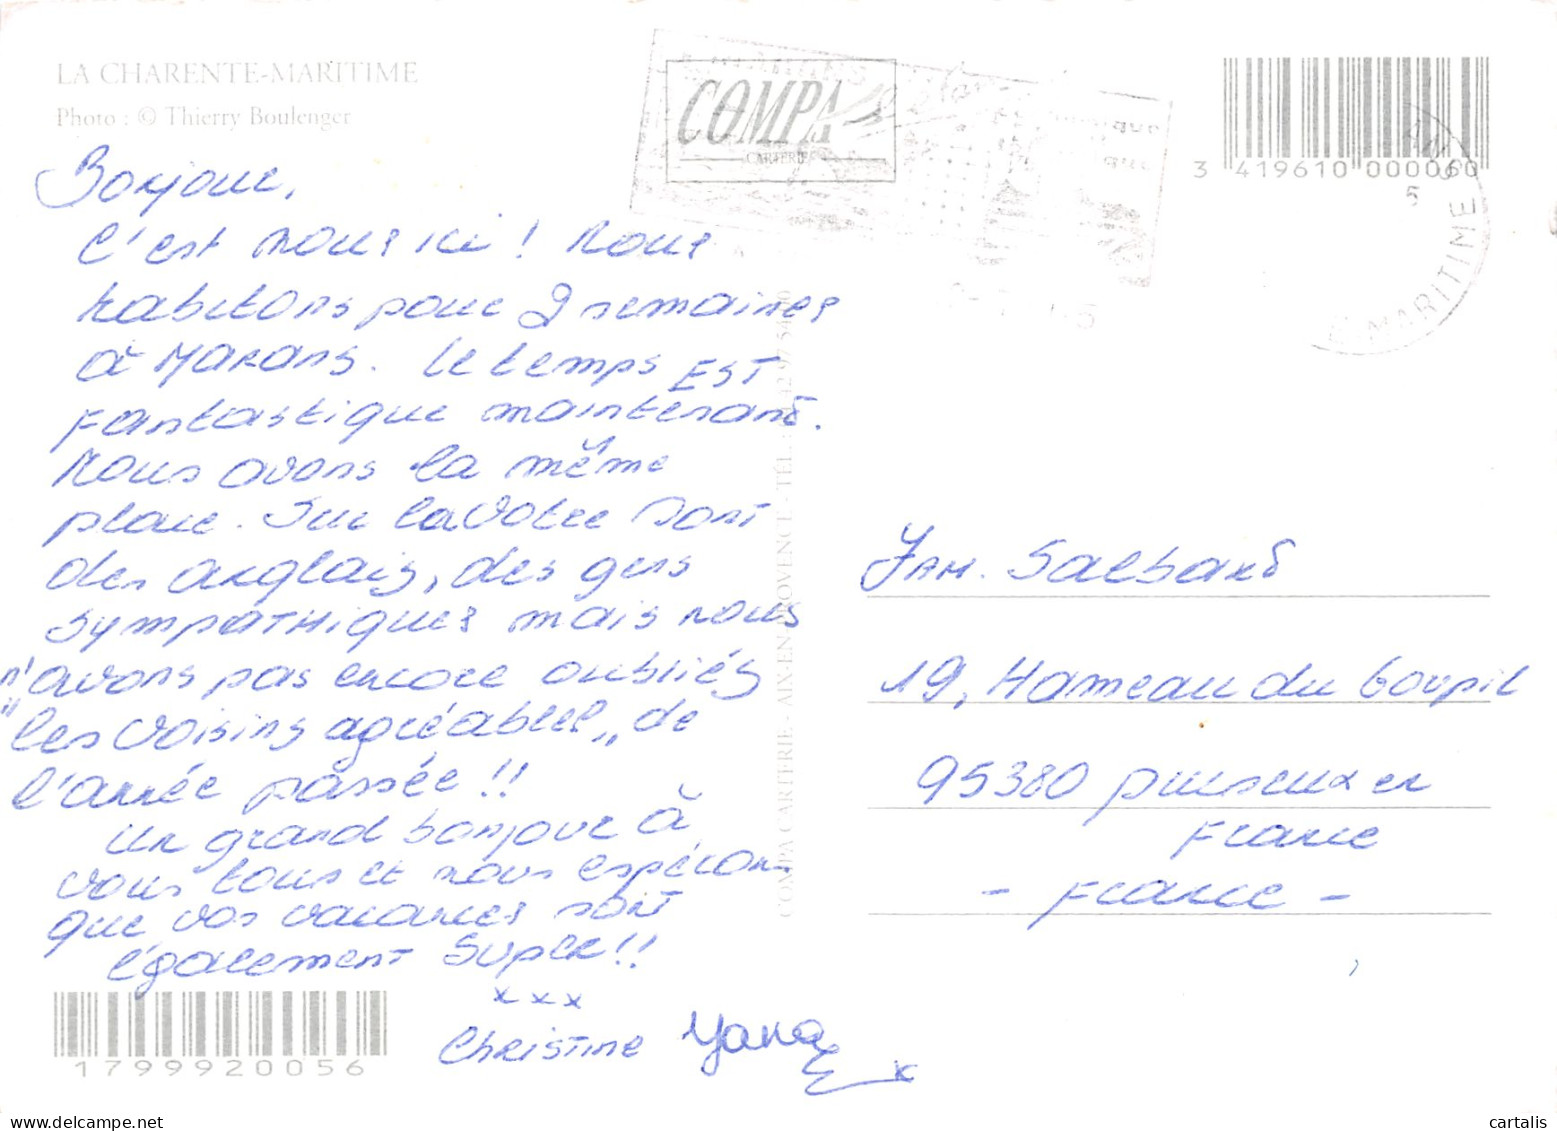 LA CHARENTE-MARITIME
Photo : © Thierry Boulenger
COMPA
CARTERIE
3 419610 000060
MARITIME
Bonjour,
C'est nous ici ! Nous
habitons pour 2 semaines
à MARANS. Le temps EST
FANTASTIQUE maintenant.
Nous avons la même
place. Sur la vôtre sont
des anglais, des gens
SYMPATHIQUES mais nous
n'avons pas encore oubliés
"les voisins agréables" de
l'année passée !!
Un grand bonjour à
vous tous et nous espérons
que vos vacances sont
également SUPER !!
x x x
Christine
COMPA CARTERIE - AIX-EN-PROVENCE - TÉL.
FAM.
19, Hameau du Goupil
95380 puiseux en
France
- France -
1799920056
cartalis
delcampe.net